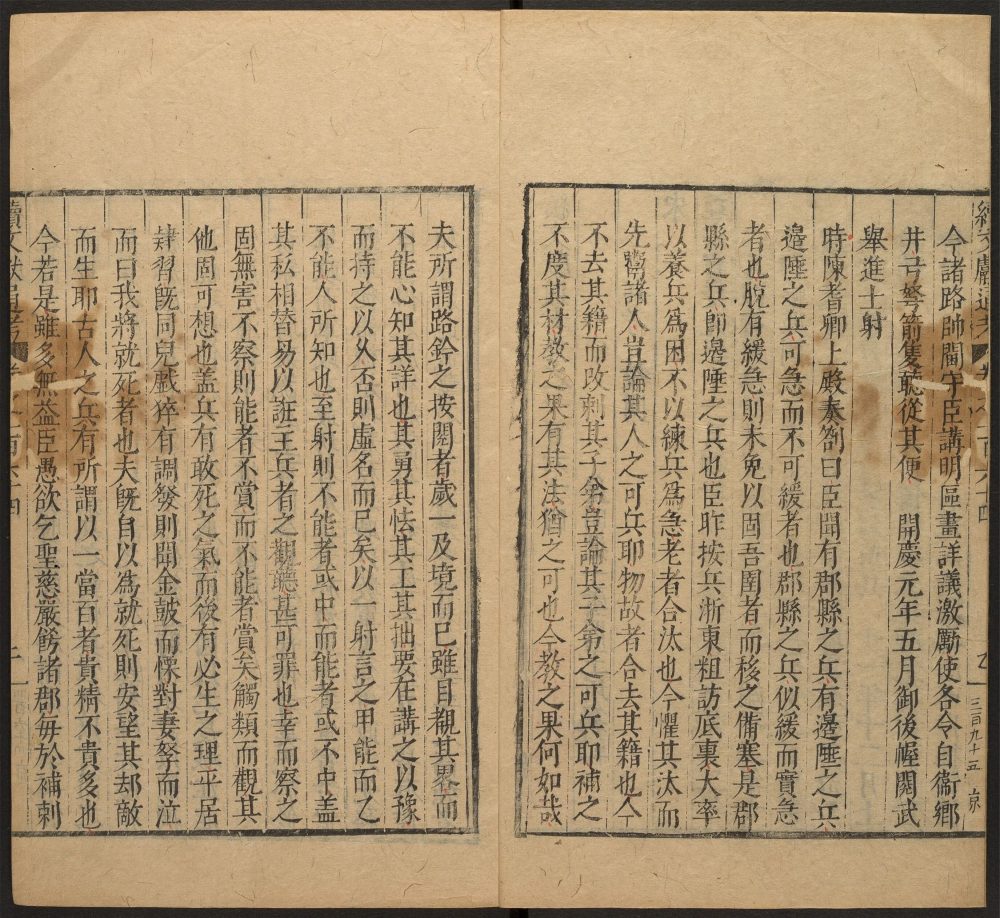 今諸路帥閫守臣講明區畫詳議激勵使各令自衞鄉
井弓弩箭隻聽從其便　開慶元年五月御後幄閱武
舉進士射
時陳耆卿上殿奏劄曰臣聞有郡縣之兵有邊陲之兵
邊陲之兵可急而不可緩者也郡縣之兵似緩而實急
者也脫有緩急則未免以固吾圉者而移之備塞是郡
縣之兵卽邊陲之兵也臣昨按兵浙東粗訪底裏大率
以養兵爲困不以練兵爲急老者合汰也今懼其汰而
先鬻諸人豈論其人之可兵耶物故者合去其籍也今
不去其籍而改刺其子弟豈論其子弟之可兵耶補之
不度其材教之果有其法猶之可也今教之果何如哉
夫所謂路鈐之按閱者歲一及境而已雖目觀其畧而
不能心知其詳也其勇其怯其工其拙要在講之以豫
而持之以久否則虛名而已矣以一射言之甲能而乙
不能人所知也至射則不能者或中而能者或不中盖
其私相替易以誑主兵者之觀聽甚可罪也幸而察之
固無害不察則能者不賞而不能者賞矣觸類而觀其
他固可想也盖兵有敢死之氣而後有必生之理平居
肄習旣同兒戲猝有調發則聞金鼓而慄對妻孥而泣
而曰我將就死者也夫旣自以爲就死則安望其却敵
而生耶古人之兵有所謂以一當百者貴精不貴多也
今若是雖多無益臣愚欲乞聖慈嚴飭諸郡毎於補刺